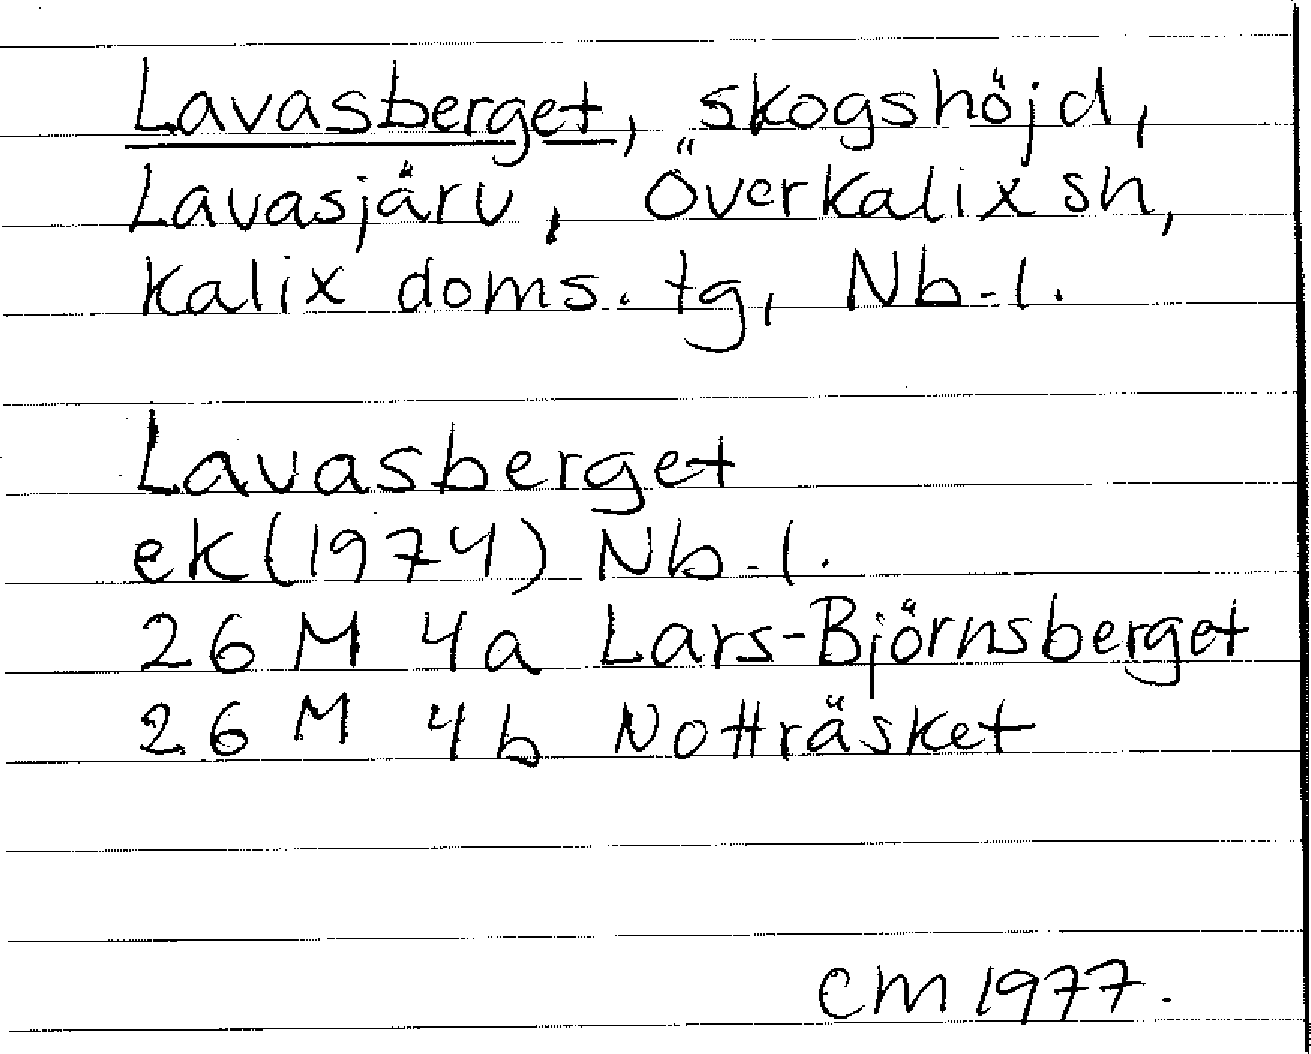 Lavasberget, skogshöjd,
Lavasjärv, Överkalix sn,
Kalix doms. tg, Nb-l.
Lavasberget
ek (1974) Nb-l.
26 M 4a Lars-Björnsberget
26 M 4b Notträsket
CM 1977.